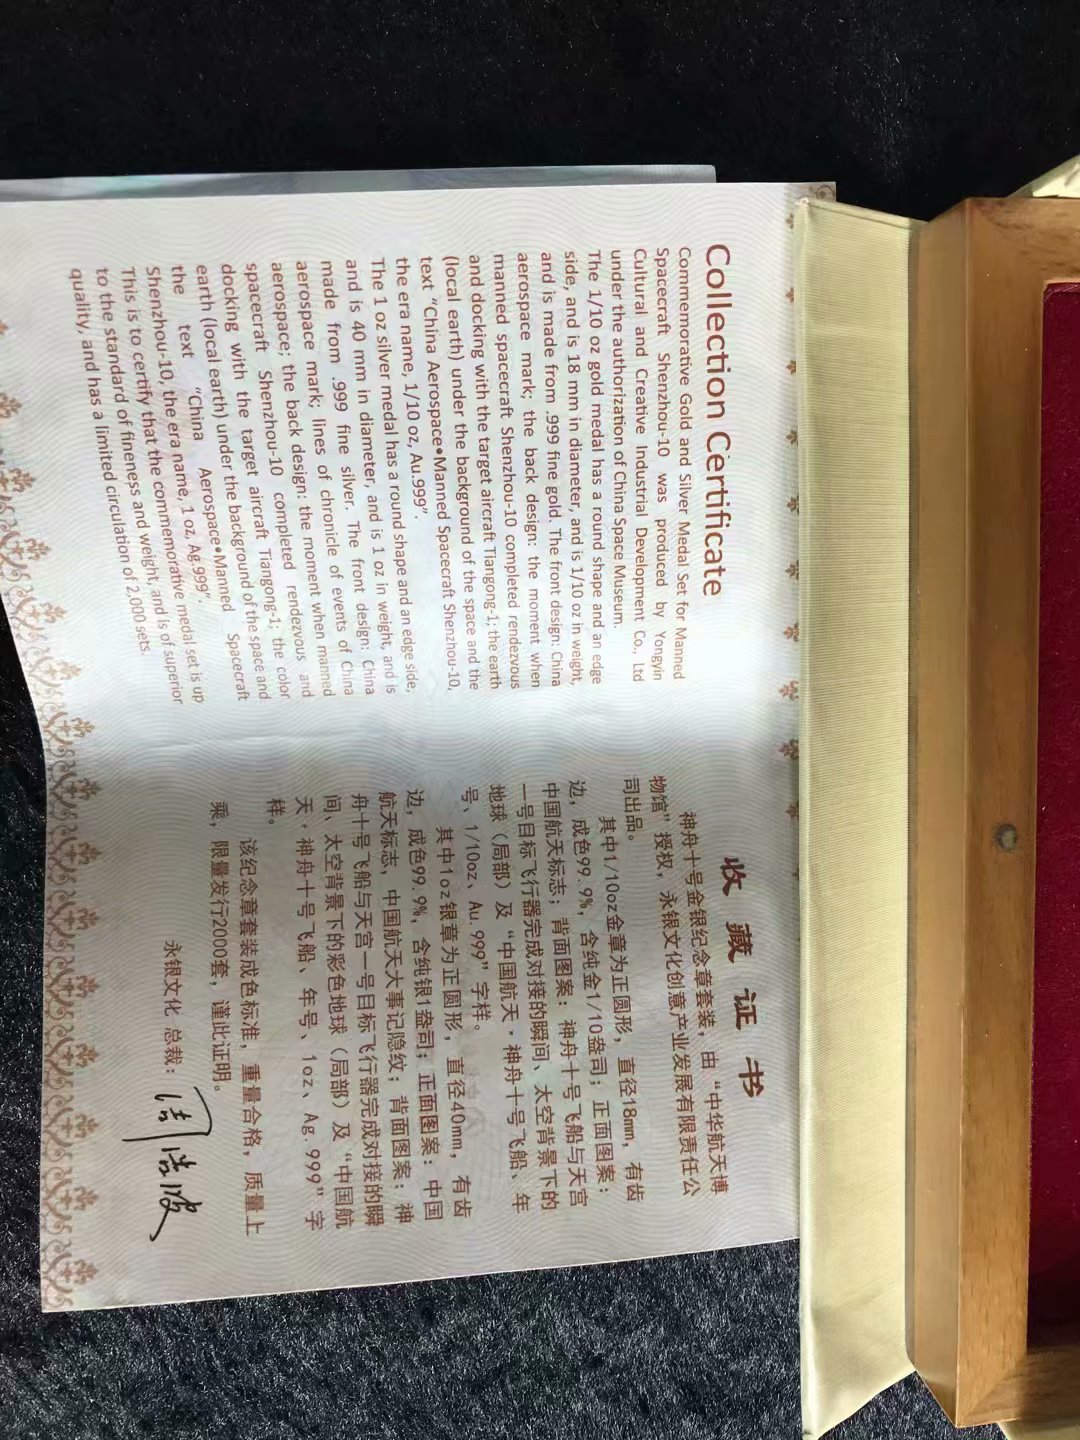 Collection Certificate
Commemorative Gold and Silver Medal Set for Manned
Spacecraft Shenzhou-10 was produced by Yongyin
Cultural and Creative Industrial Development Co., Ltd
under the authorization of China Space Museum.
The 1/10 oz gold medal has a round shape and an edge
side, and is 18 mm in diameter, and is 1/10 oz in weight,
and is made from .999 fine gold. The front design: China
aerospace mark; the back design: the moment when
manned spacecraft Shenzhou-10 completed rendezvous
and docking with the target aircraft Tiangong-1; the earth
(local earth) under the background of the space and the
text "China Aerospace•Manned Spacecraft Shenzhou-10,
the era name, 1/10 oz, Au.999".
The 1 oz silver medal has a round shape and an edge side,
and is 40 mm in diameter, and is 1 oz in weight, and is
made from .999 fine silver. The front design: China
aerospace mark; lines of chronicle of events of China
aerospace; the back design: the moment when manned
spacecraft Shenzhou-10 completed rendezvous and
docking with the target aircraft Tiangong-1; the color
earth (local earth) under the background of the space and
the text "China Aerospace•Manned Spacecraft
Shenzhou-10, the era name, 1 oz, Ag.999".
This is to certify that the commemorative medal set is up
to the standard of fineness and weight, and is of superior
quality, and has a limited circulation of 2,000 sets.
收藏证书
神舟十号金银纪念章套装，由“中华航天博
物馆”授权，永银文化创意产业发展有限责任公
司出品。
其中1/10oz金章为正圆形，直径18mm，有齿
边，成色99.9%，含纯金1/10盎司；正面图案：
中国航天标志；背面图案：神舟十号飞船与天宫
一号目标飞行器完成对接的瞬间、太空背景下的
地球（局部）及“中国航天·神舟十号飞船、年
号、1/10oz、Au.999”字样。
其中1oz银章为正圆形，直径40mm，有齿
边，成色99.9%，含纯银1盎司；正面图案：中国
航天标志，中国航天大事记隐纹；背面图案：神
舟十号飞船与天宫一号目标飞行器完成对接的瞬
间、太空背景下的彩色地球（局部）及“中国航
天·神舟十号飞船、年号、1oz、Ag.999”字
样。
该纪念章套装成色标准，重量合格，质量上
乘，限量发行2000套，谨此证明。
永银文化 总裁：周浩波